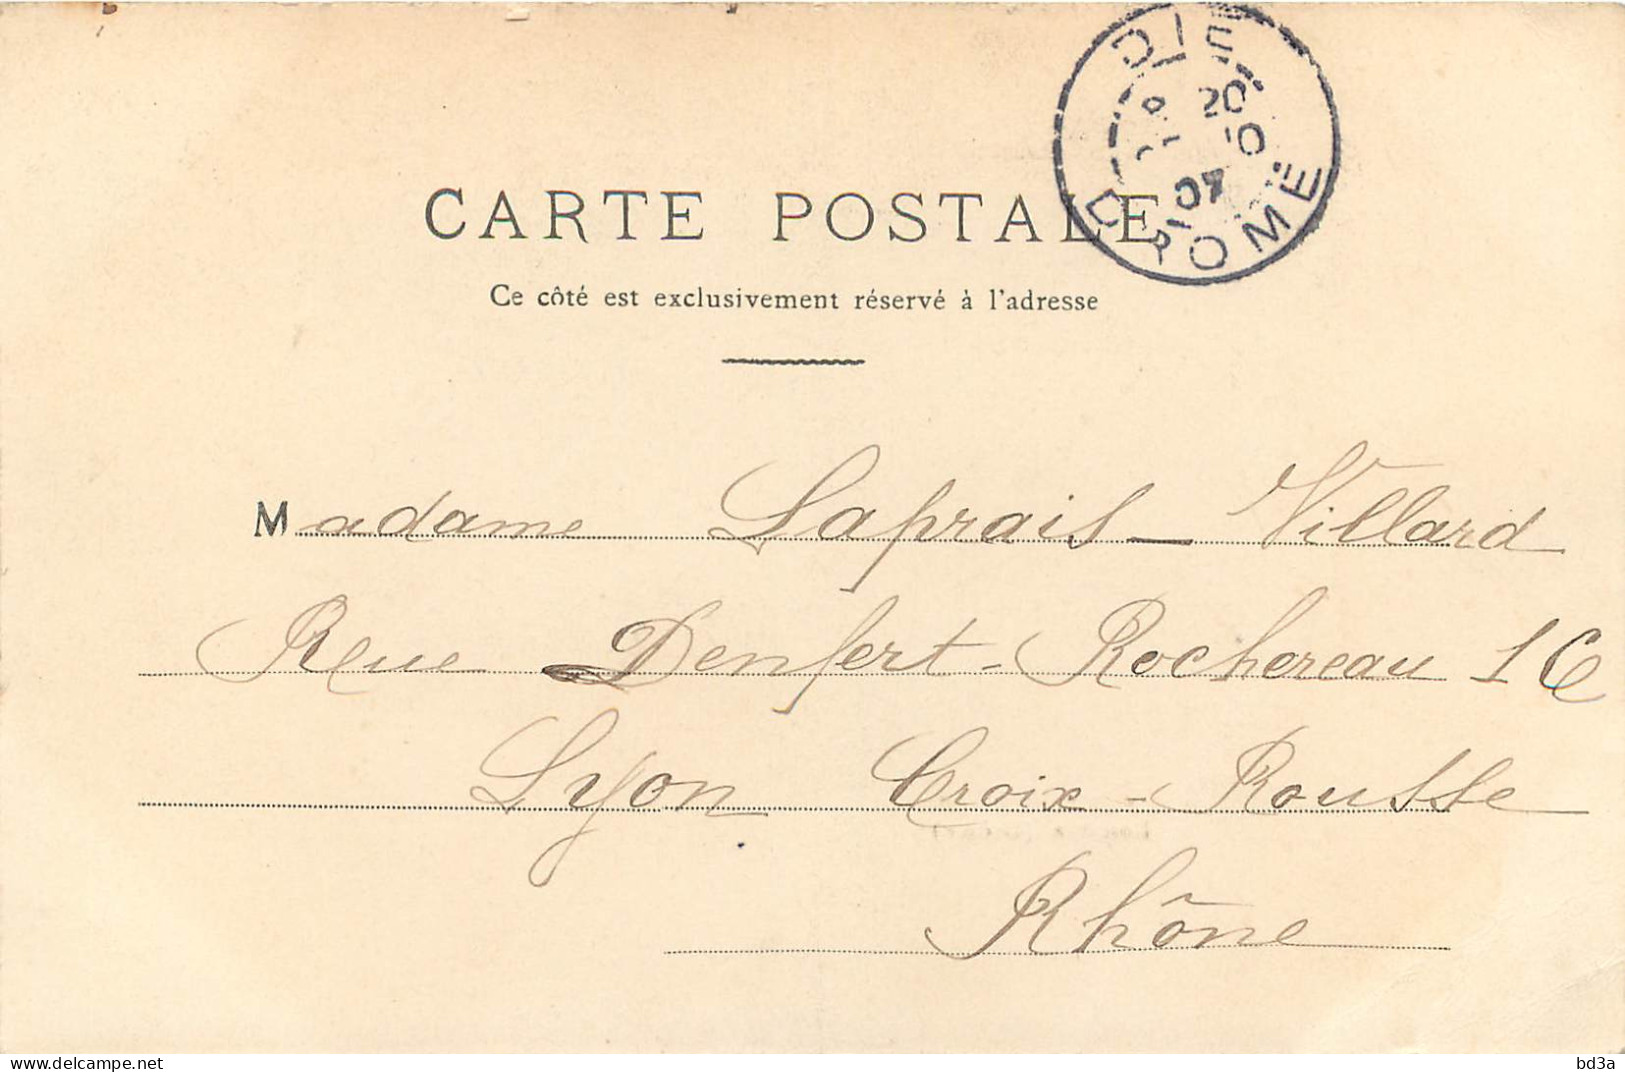 DIE
20
-10
07
DROME
CARTE POSTALE
Ce côté est exclusivement réservé à l'adresse
Madame Laprais - Villard
Rue Denfert-Rochereau 16
Lyon Croix-Rousse
Rhône
delcampe.net
bd3a